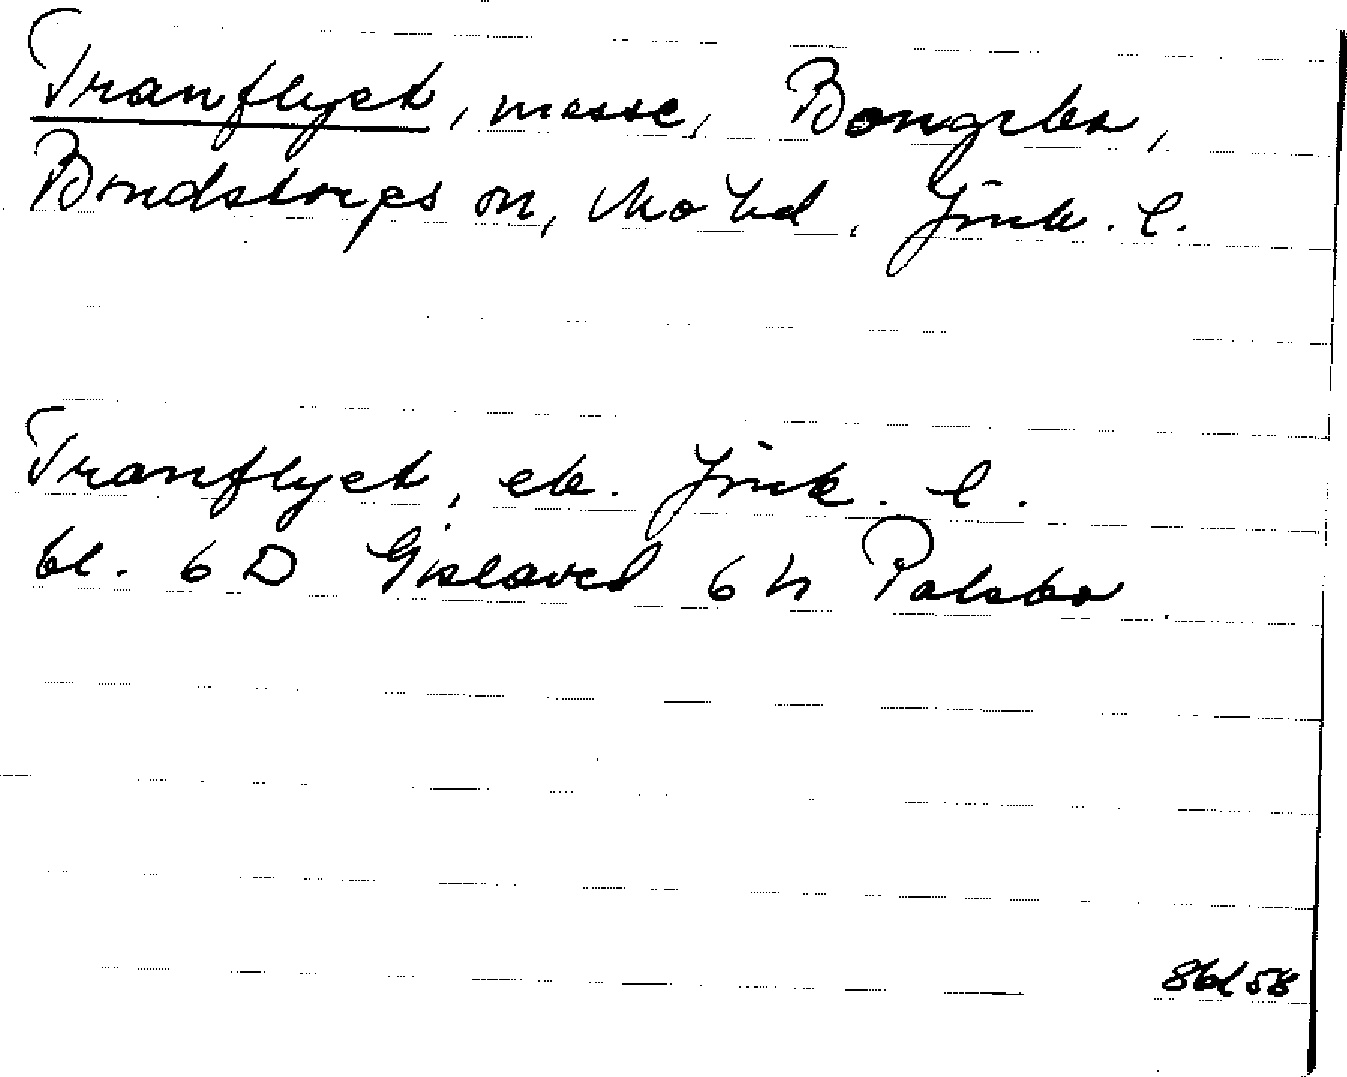 Tranflyet, mosse, Bongebo,
Bondstorps sn, Mo hd, Jönk. l.
Tranflyet, ek. Jönk. l.
bl. 6 D Gislaved 6 h Palsbo